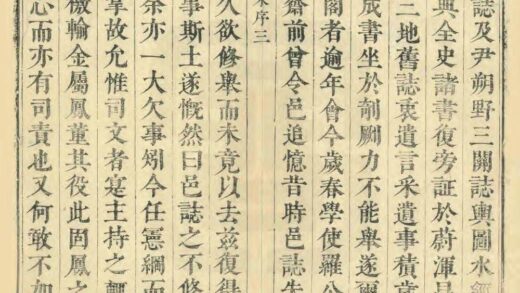 誌及尹朔野三關誌輿圖水經
與全史諸書復旁証於蔚渾
三地舊誌裒遺言采遺事積
成書坐於剞劂力不能舉遂
閣者逾年會今歲春學使羅公
齋前曾令邑追憶昔時邑誌失
序三
久欲修舉而未竟以去茲復得
事斯土遂慨然曰邑誌之不修
奈亦一大欠事矧今任憲綱而
掌故允惟司文者寔主持之
檄輸金屬鳳董其役此固鳳之
心而亦有司責也又何敢不如